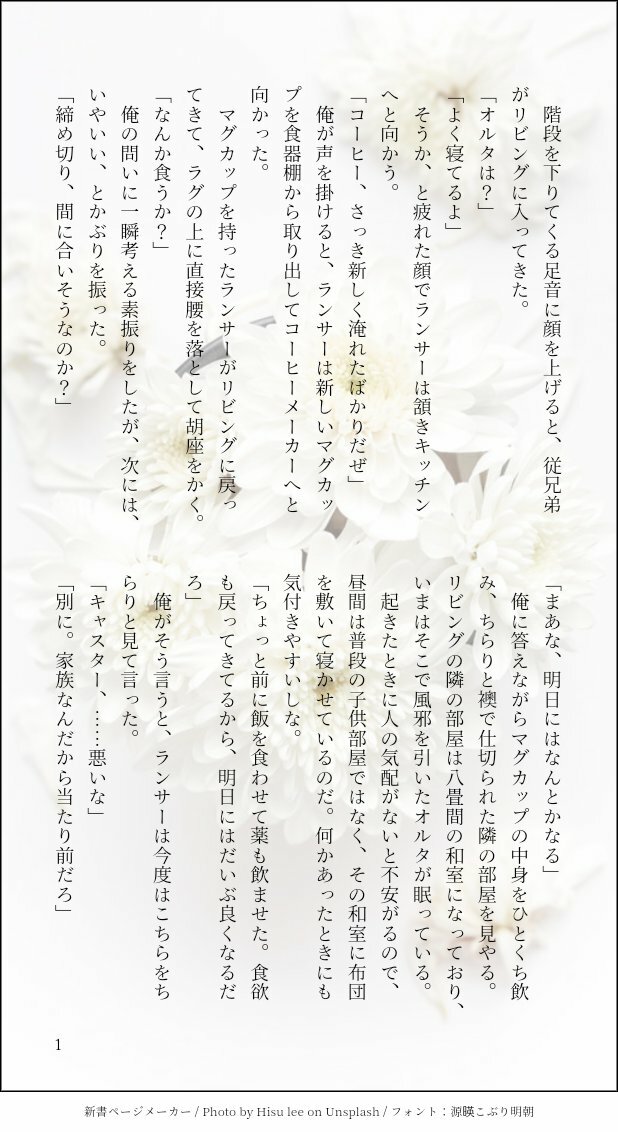 階段を下りてくる足音に顔を上げると、従兄弟
がリビングに入ってきた。
「オルタは？」
「よく寝てるよ」
そうか、と疲れた顔でランサーは頷きキッチン
へと向かう。
「コーヒー、さっき新しく淹れたばかりだぜ」
俺が声を掛けると、ランサーは新しいマグカッ
プを食器棚から取り出してコーヒーメーカーへと
向かった。
マグカップを持ったランサーがリビングに戻っ
てきて、ラグの上に直接腰を落として胡座をかく。
「なんか食うか？」
俺の問いに一瞬考える素振りをしたが、次には、
いやいい、とかぶりを振った。
「締め切り、間に合いそうなのか？」
「まあな、明日にはなんとかなる」
俺に答えながらマグカップの中身をひとくち飲
み、ちらりと襖で仕切られた隣の部屋を見やる。
リビングの隣の部屋は八畳間の和室になっており、
いまはそこで風邪を引いたオルタが眠っている。
起きたときに人の気配がないと不安がるので、
昼間は普段の子供部屋ではなく、その和室に布団
を敷いて寝かせているのだ。何かあったときにも
気付きやすいしな。
「ちょっと前に飯を食わせて薬も飲ませた。食欲
も戻ってきてるから、明日にはだいぶ良くなるだ
ろ」
俺がそう言うと、ランサーは今度はこちらをち
らりと見て言った。
「キャスター、……悪いな」
「別に。家族なんだから当たり前だろ」
1
新書ページメーカー / Photo by Hisu lee on Unsplash / フォント：源暎こぶり明朝